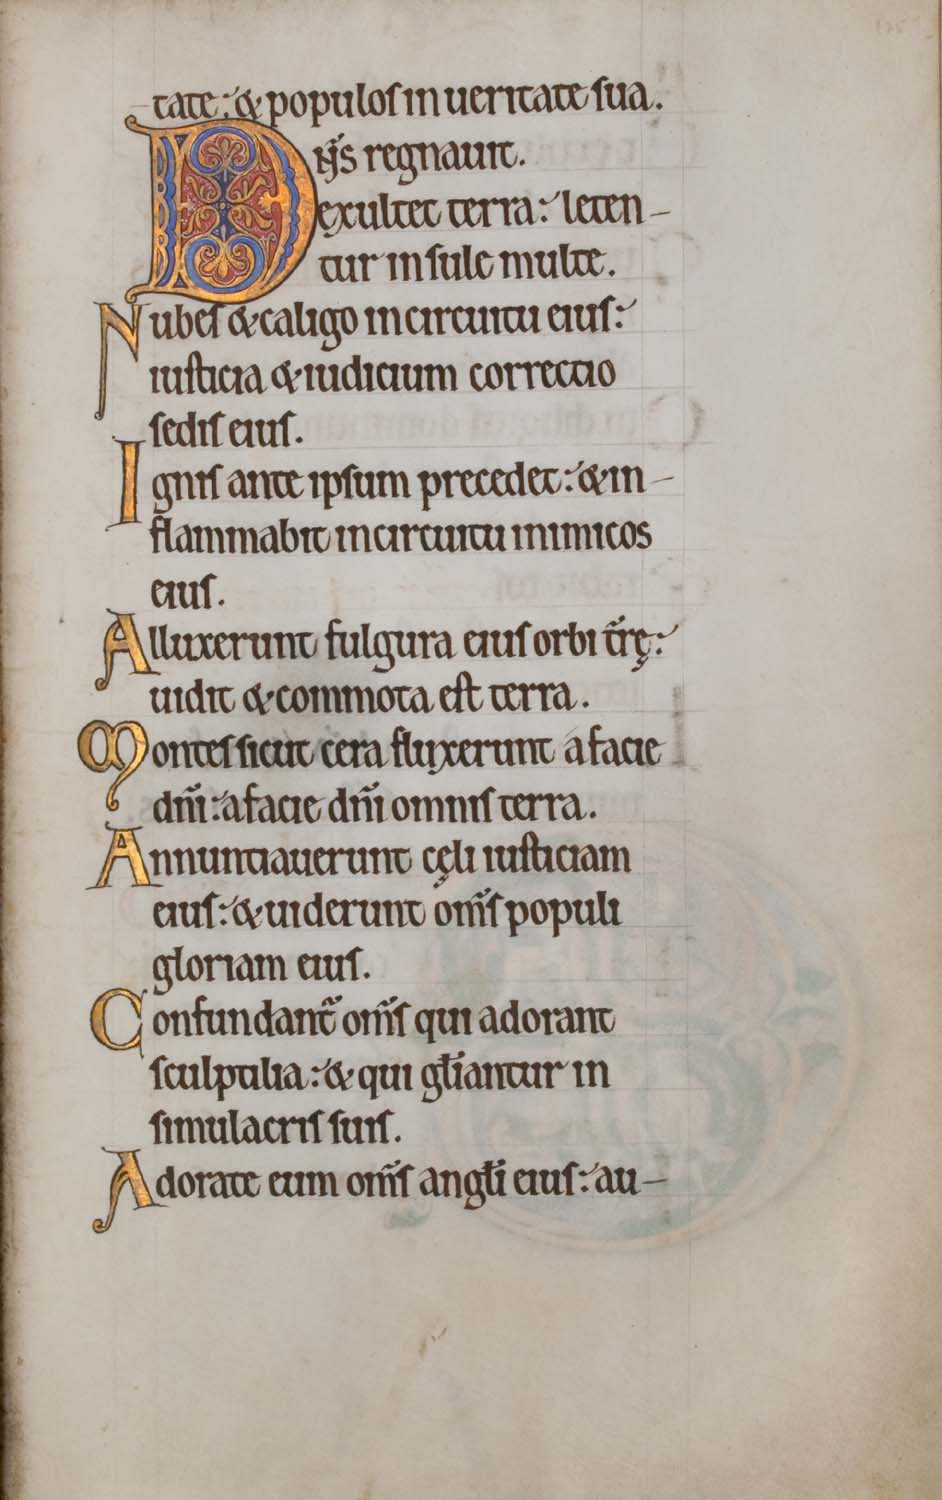 tate: & populos in ueritate sua.
Dn̄s regnauit.
exultet terra: leten-
tur insule multe.
Nubes & caligo in circuitu eius:
iusticia & iudicium correctio
sedis eius.
Ignis ante ipsum precedet: & in-
flammabit in circuitu inimicos
eius.
Alluxerunt fulgura eius orbi t̄rę:
uidit & commota est terra.
Montes sicut cera fluxerunt a facie
dn̄i: a facie dn̄i omnis terra.
Annuntiauerunt cęli iusticiam
eius: & uiderunt om̄s populi
gloriam eius.
Confundant̄ om̄s qui adorant
sculptilia: & qui gl̄iantur in
simulacris suis.
Adorate eum om̄s angl̄i eius: au-
125